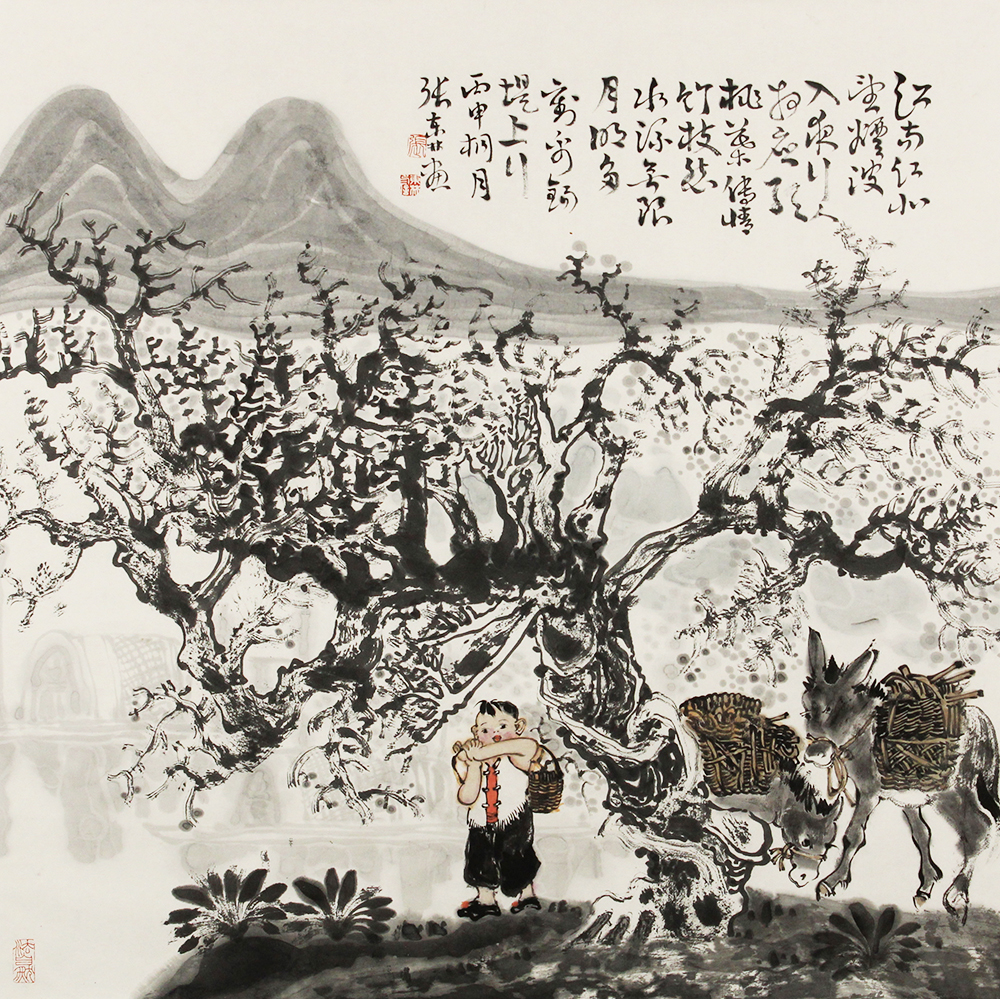 江南江北
望煙波
入夜行人
相应歌
桃葉傳情
竹枝怨
水流无限
月明多
刘禹锡
堤上行
丙申桐月
张东林画